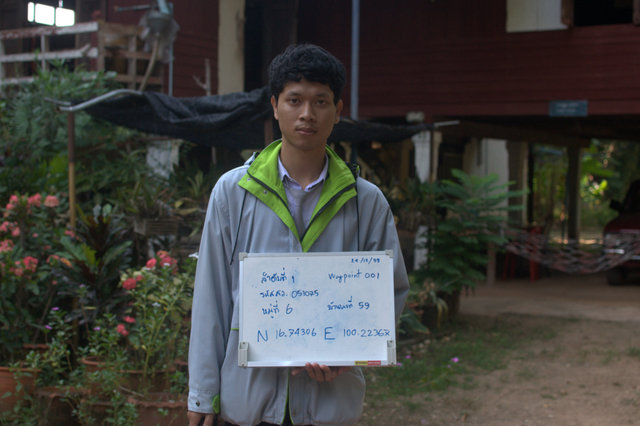 24/12/59
ลำดับที่ 1 Waypoint 001
รหัสสว. 051075
หมู่ที่ 6 บ้านเลขที่ 59
N 16.74306 E 100.22362